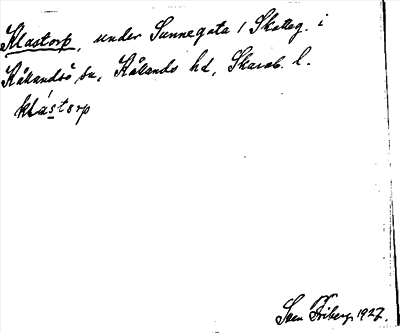 Klastorp, under Sunnegata 1 Skatteg. i
Kållandsö sn, Kållands hd, Skarab. l.
klástorp
Sven Friberg 1927.